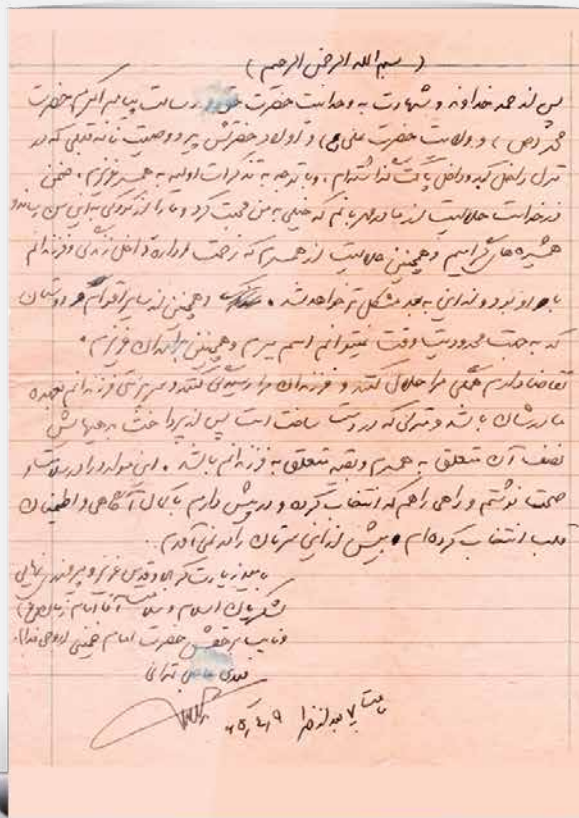 (بسم الله الرحمن الرحیم)
پس از حمد خداوند و شهادت به وحدانیت حضرت حق و رسالت پیامبر اکرم حضرت
محمد (ص) و ولایت حضرت علی (ع) و اولاد و وصیت نامه قبلی که در
منزل داخل کمد و داخل پاکت گذاشته‌ام، و با توجه به تذکرات اولیه به همسر عزیزم، ضمن
درخواست حلالیت از مادر مهربانم که خیلی به من محبت کرد و ما را از کودکی به این سن رساند و
همشیره‌های گرامیم و همچنین حلالیت از همسرم که زحمت اداره داخل زندگی و فرزندانم
با او بود و از این به بعد مشکل‌تر خواهد شد. و همچنین از سایر اقوام و دوستان
که به جهت محدودیت وقت نمیتوانم اسم ببرم و همچنین برادران عزیزم.
تقاضا دارم همگی مرا حلال کنند و فرزندان مرا رسیدگی کنند و سرپرستی فرزندانم بعهده
مادرشان باشد و منزلی که در دست ساخت است پس از پرداخت بدهیهایش
نصف آن متعلق به همسرم و بقیه متعلق به فرزندانم باشد. این موارد را در سلامت
صحت نوشتم و راهی را هم که انتخاب کرده و در پیش دارم با کمال آگاهی و اطمینان
قلب انتخاب کرده‌ام. بیش از این سرتان را درد نمی‌آورم.
بامید زیارت کربلا و قدس عزیز و پیروزی نهایی
لشکریان اسلام و سلامت آقا امام زمان (عج)
و نایب بر حقش حضرت امام خمینی (روحی فدا).
مهدی تهرانی
ساعت ۷ بعد از ظهر ۶۵/۴/۹